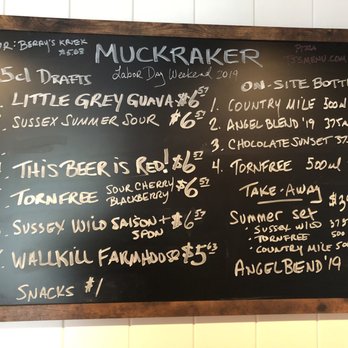 MUCKRAKER
Labor Day Weekend 2019
: BERRY'S KRIEK
$5.63
5cl DRAFTS
LITTLE GREY GUAVA $6.57
SUSSEX SUMMER SOUR $6.57
THIS BEER IS RED! $6.57
TORNFREE SOUR CHERRY BLACKBERRY $6.57
SUSSEX WILD SAISON + SPON $6.57
WALLKILL FARMHOUSE $5.63
SNACKS $1
TJSMENU.COM
ON-SITE BOTT
1. COUNTRY MILE 500ml
2. ANGEL BLEND '19 375m
3. CHOCOLATE SUNSET 37
4. TORNFREE 500ml
TAKE-AWAY
SUMMER SET
• SUSSEX WILD 375
• TORNFREE 500
• COUNTRY MILE 50
ANGEL BEND '19